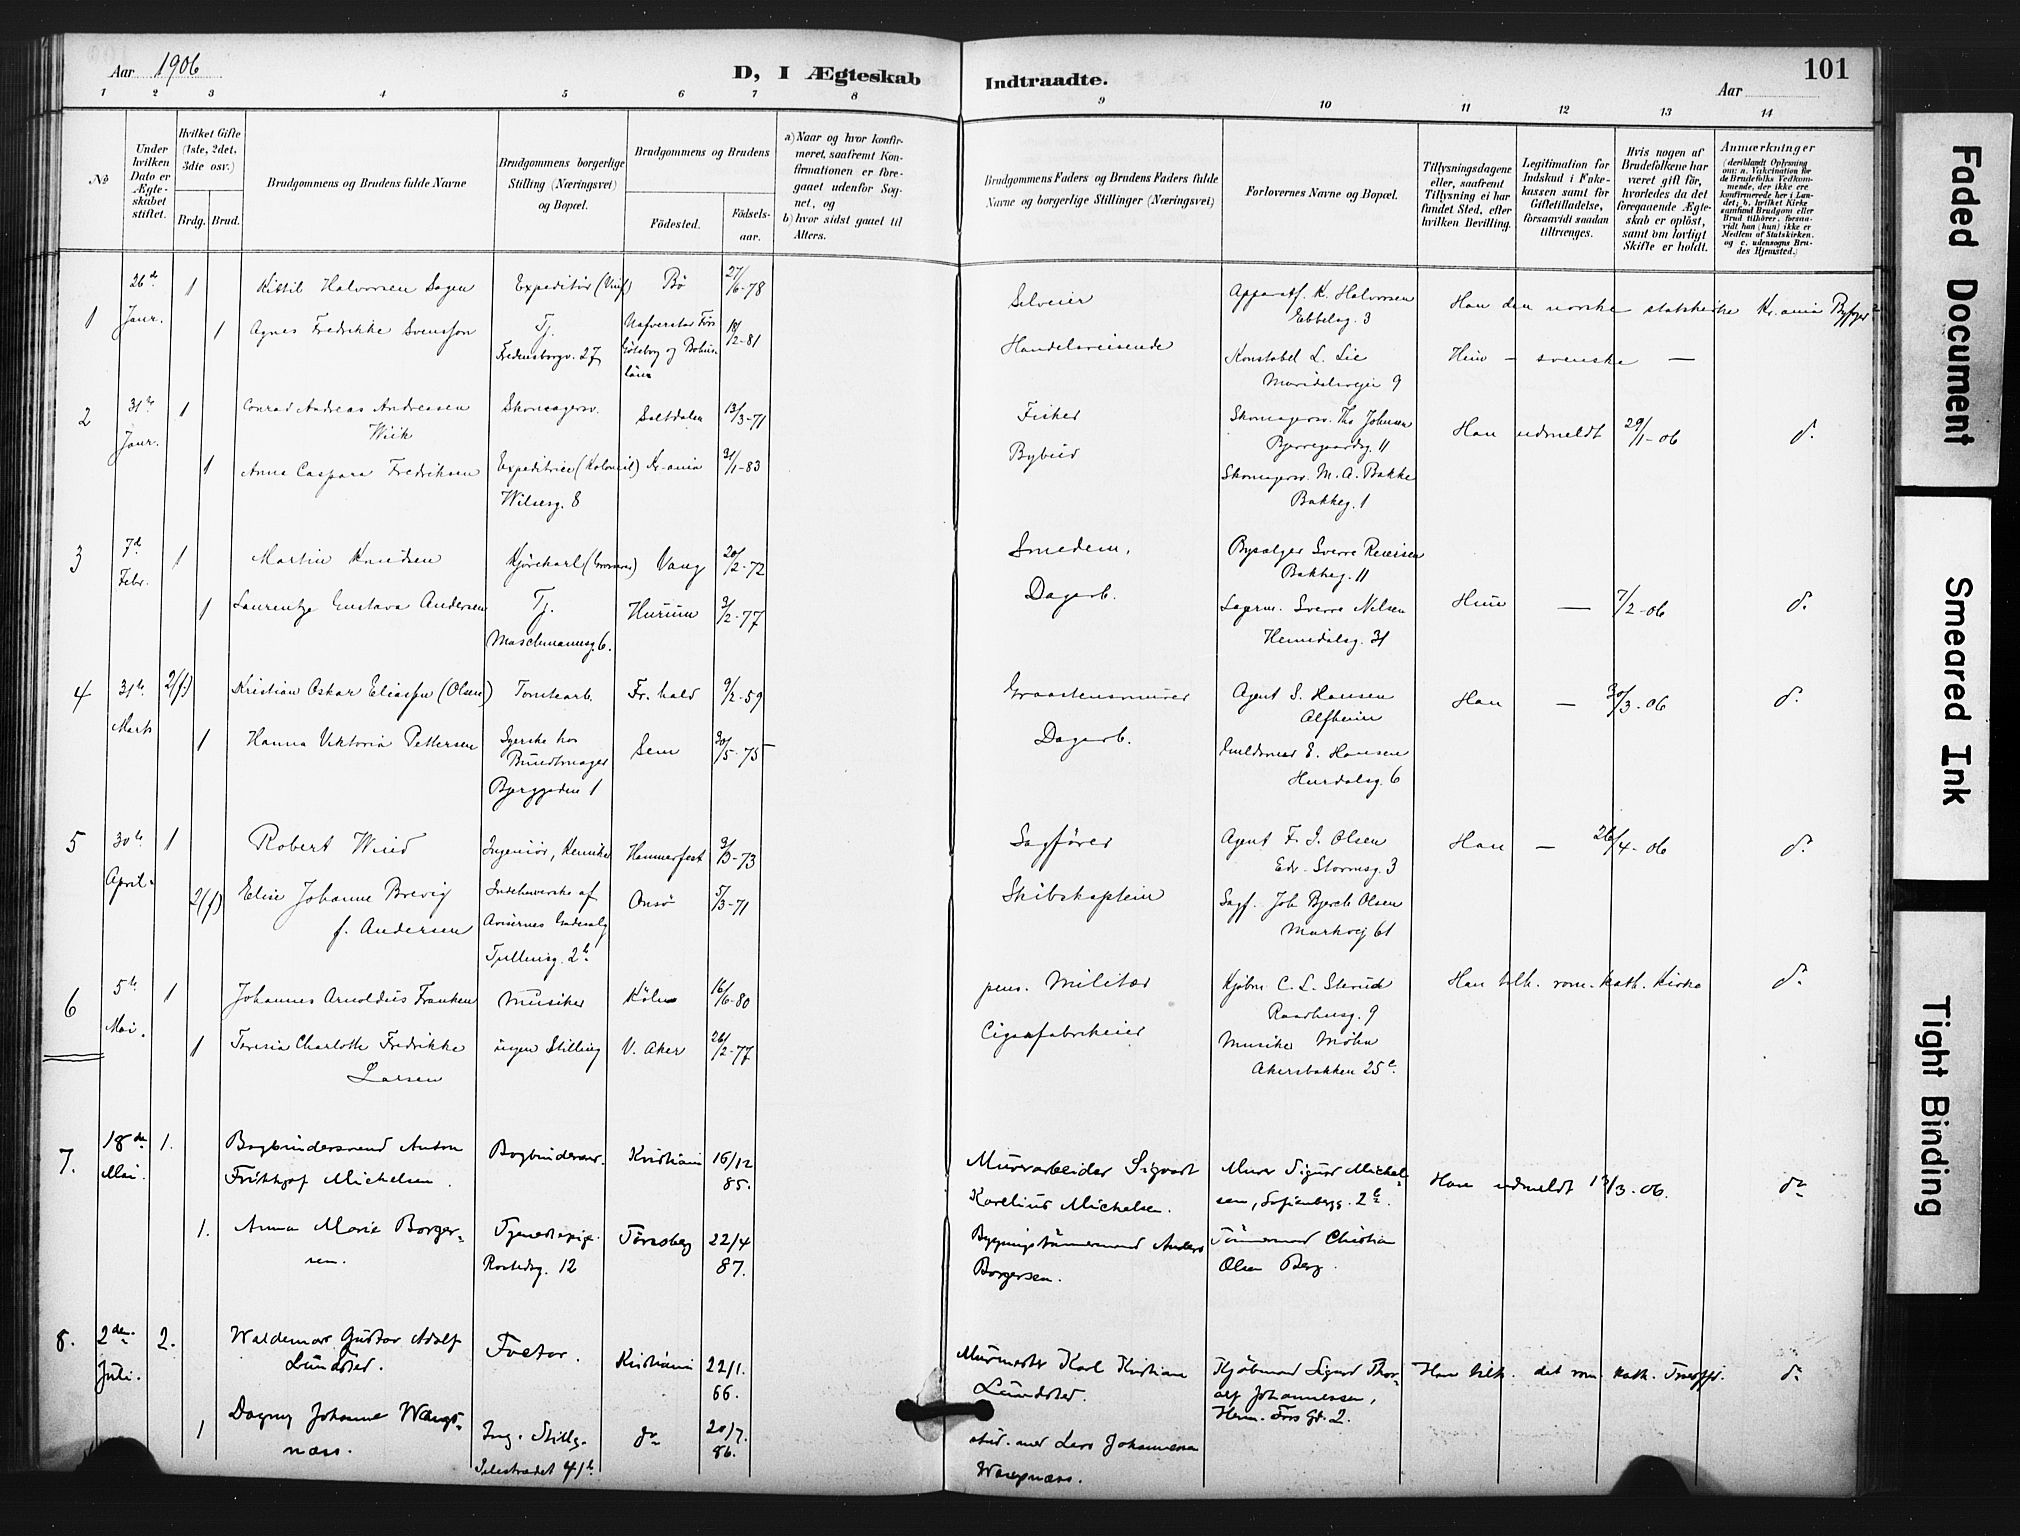 Aar 1906
D, I Ægteskab
Indtraadte.
101
Aar
1 2 3 4 5 6 7 8
9 10 11 12 13 14
No
Under hvilken Dato er Ægteskabet stiftet.
Hvilket Gifte (1ste, 2det, 3die osv.)
Brdg. Brud.
Brudgommens og Brudens fulde Navne
Brudgommens borgerlige Stilling (Næringsvei) og Bopæl.
Brudgommens og Brudens
Fødested.
Fødselsaar.
a) Naar og hvor konfirmeret, saafremt Konfirmationen er foregaaet udenfor Sognet, og
b) hvor sidst gaaet til Alters.
Brudgommens Faders og Brudens Faders fulde Navne og borgerlige Stillinger (Næringsvei)
Forlovernes Navne og Bopæl.
Tillysningsdagene eller, saafremt Tillysning ei har fundet Sted, efter hvilken Bevilling.
Legitimation for Indskud i Fakekassen samt for Giftetilladelse, forsaavidt saadan tiltrænges.
Hvis nogen af Brudefolkene har været gift før, hvorledes da det foregaaende Ægteskab er opløst, samt om lovligt Skifte er holdt.
Anmærkninger
(deriblandt Oplysning om: a. Vakcination for de Brudefolks Vedkommende, der ikke ere konfirmerede her i Landet; b. hvilket Kirkesamfund Brudgom eller Brud tilhører, forsaavidt han (hun) ikke er Medlem af Statskirken, og c. udensogns Brudes Hjemsted.)
1 26d Janr. 1 Kittil Halvorsen Sagen Expeditør (Vinf) Bø 27/6-78 Selveier Apparatf. K. Halvorsen Han den norske statskirke Kr.ania
Ebbelsg. 3
1 Agnes Fredrikke Svensson Tj. 18/2-81 Handelsreisende Konstabel L. Lie Hun – svenske –
Fredensborgv. 27 Göteborg og Bohus län Maridalsveien 9
2 31te Janr. 1 Conrad Andreas Andreasen Wiik Skomagersv. Saltdalen 13/3-71 Fisker Skomagersv. Th. Johnsen Han udmeldt 29/1-06 d.
Bjerregaardsg. 11
1 Anna Caspara Fredriksen Expeditrice (Kolonial) Kr.ania 31/1-83 Bybud Skomagersv. M. A. Bakke
Wilsesg. 8 Bakkeg. 1
3 7d Febr. 1 Martin Knudsen Kjørekarl Vang 20/2-72 Smedem. Bysælger Sverre Reiersen
Bakkeg. 11
1 Laurentze Gustava Andersen Tj. Hurum 3/2-77 Dagarb. Lagerm. Sverre Nilsen Hun – 7/2-06 d.
Maschmannsg. 6. Hemsdalsg. 31
4 31te Marts 2(f.) Kristian Oskar Eliassen (Olsen) Tomtearb. Fr.hald 9/2-59 Graastensmurer Agent S. Hansen Han – 30/3-06 d.
Alfheim
1 Hanna Viktoria Pettersen Syerske hos Buntmager Sem 30/5-75 Dagarb. E. Hansen
Bjerggaden 1 Hurdalsg. 6
5 30te April. 1 Robert Wiid Ingeniør, Hammerfest 3/3-73 Sagfører Agent F. I. Olsen Han – 26/4-06 d.
Edv. Stormsg. 3
2(f) Elise Johanne Brevig f. Andersen Indehaverske af Onsø 5/3-71 Skibskaptein Sagf. Joh Bjerch Olsen
Markvej 61
6 5te Mai. 1 Johannes Arnoldus Franken Musiker Köln 16/6-80 pens. Militær Kjøbm. C. L. Sterud Han tilh. rom. kath. kirke d.
Raadhusg. 9
1 Teresia Charlotte Fredrikke Larsen ingen Stilling V. Aker 26/2-77 Cigarfabrikeier Musiker Møhn
Akersbakken 25c.
7. 18de Mai. 1. Bogbindersvend Anton Bogbindersv. Kristiania 16/12 85. Murerarbeider Sigvart Murer Sigurd Michelsen, Sofienbergg. 2b. Han udmeldt 13/3-06. do
Frithjof Michelsen. Karelius Michelsen.
1. Anna Marie Borgersen. Tjenestepige. Tønsberg 22/4 87. Bygningstømmermand Anders Borgersen. Tømmermand Christian Olsen Berg.
Rostedsg. 12
8. 2den Juli. 2. Waldemar Gustav Adolf Lundsted. Factor. Kristiania 22/1. 66. Murmester Karl Kristian Lundsted. Kjøbmand Sigurd Thoralf Johannessen, Herm. Foss Gd. 2. Han tilh. det rom. kath. Trossf. do
1 Dagny Johanne Wangsnæss. Ing. Stillg. do 20/7. 86. Lars Johannesen Wangsnæss.
Pilestrædet 41b.
Faded Document
Smeared Ink
Tight Binding